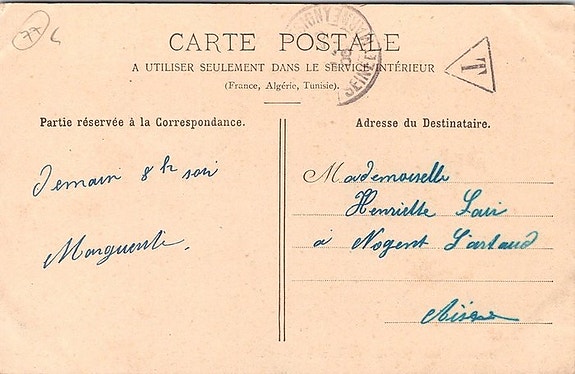 77 L
CARTE POSTALE
A UTILISER SEULEMENT DANS LE SERVICE INTÉRIEUR
(France, Algérie, Tunisie).
T
SEINE
Partie réservée à la Correspondance.
Adresse du Destinataire.
Demain 8h soir
Marguerite.
Mademoiselle
Henriette
à Nogent L'artaud
Aisne